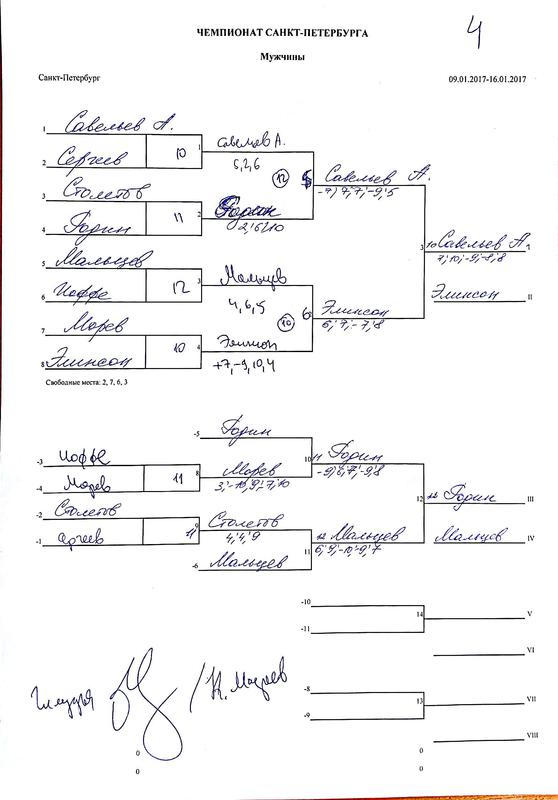 4
ЧЕМПИОНАТ САНКТ-ПЕТЕРБУРГА
Мужчины
Санкт-Петербург 09.01.2017-16.01.2017
1 Савельев А.
10 1 Савельев А.
2 Сергеев 5, 2, 6
12 5 Савельев А.
-7, 7, 7, -9, 5
3 Столетов
11 2 Горин
4 Горин 2, 6, 10
3 10 Савельев А. I
7, 10, -9, -8, 8
5 Мальцев
12 3 Мальцев
6 Иоффе 4, 6, 5
Элинсон II
10 6 Элинсон
6, 7, -7, 8
7 Морев
10 4 Элинсон
8 Элинсон +7, -9, 10, 4
Свободные места: 2, 7, 6, 3
-5 Горин
10 11 Горин
-9, 6, 7, -9, 8
-3 Иоффе
11 8 Морев
-4 Морев 3, -10, 9, 7, 10
12 12 Горин III
-2 Столетов
11 9 Столетов
-1 Сергеев 4, 4, 9
11 12 Мальцев
6, 9, -10, -9, 7
Мальцев IV
-6 Мальцев
-10
14 V
-11
VI
-8
13 VII
-9
VIII
0 0
0 0